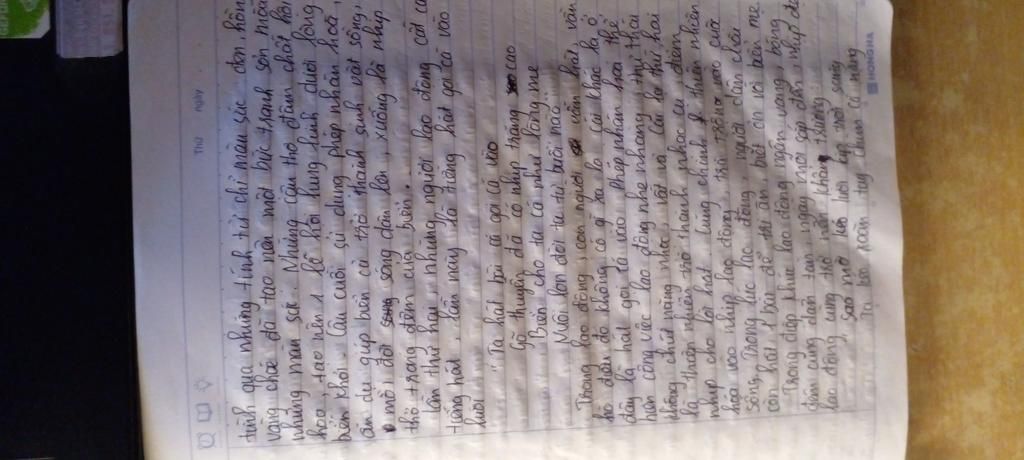 Thứ ngày
tình qua những tính từ chỉ màu sắc đen hồn
vàng choé đã tạo nên một bức tranh sơn mài
những màu sắc. Những câu thơ đậm chất hội
hoạ, tạo nên 1 lễ hội lung linh dưới lòng
biển khơi. Câu cuối sử dụng phép nhân hoá,
ẩn dụ giúp biển cả trở thành sinh vật sống,
mỗi đợt sóng dâng lên, xuống là nhịp
thở trong đêm của biển.
Tâm thế hay những người lao động cất ca
tiếng hát, lần này là tiếng hát gọi cá vào
lưới
"Ta hát bài ca gọi cá vào
Gõ thuyền đã có nhịp trăng cao
Biển cho ta cá như lòng mẹ
Nuôi lớn đời ta tự buổi nào"
Trong lao động, con người vẫn hát, vẫn
hò điều đó không có gì xa lạ. Cái khác lạ ở
đây là hát gọi cá vào. Phép nhân hoá thế
nên công việc lao động nhẹ nhàng, thi thái
không chút nặng nhọc, vất vả. Câu thơ thứ hai
là thiên nhiên đã trở thành nhạc cụ điểm
nhịp cho lời hát. Lúng chính là thiên nhiên
hòa vào nhịp lao động, trở trước cuộc
sống. Trong lúc lao động, người dân chài
còn hát 1 bài để tri ân, biết ơn với biển mẹ
Trong điệp khúc lao động ngân vang, bỗng
dấm cũng dần tan, ngày mới sắp đến, nhịp độ
lao động cùng thơ vẫn khẩn trương:
"Sao mờ kéo lưới kịp trời sáng
Ta kéo xoăn tay chùm cá nặng
HONG HA